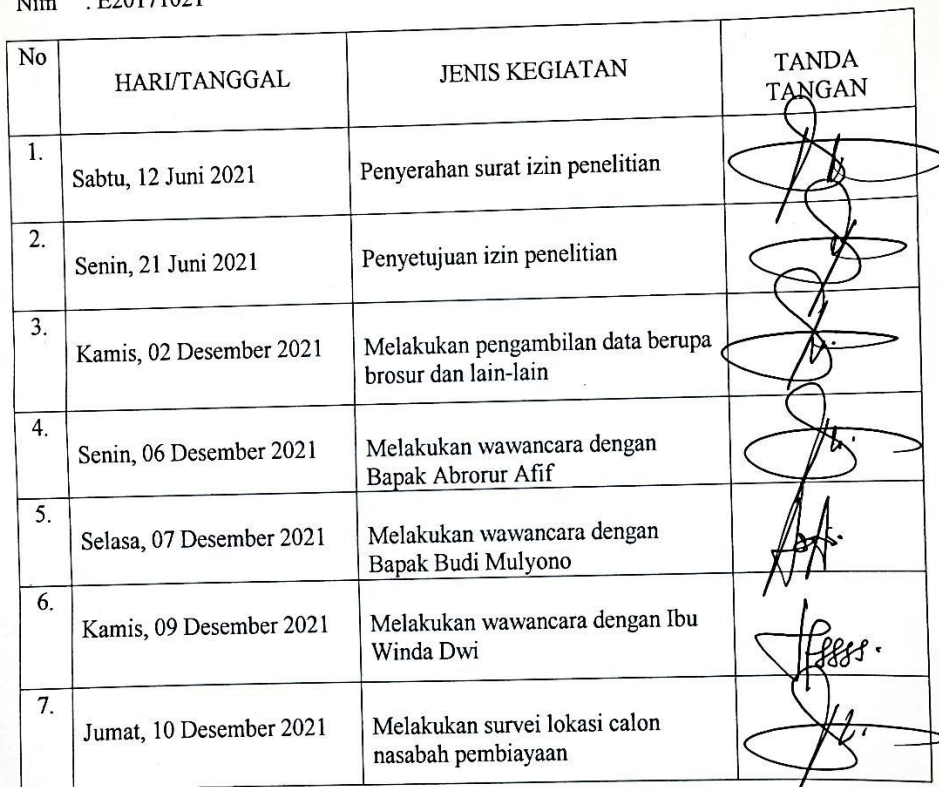 Nim : E20171021
No HARI/TANGGAL JENIS KEGIATAN TANDA
TANGAN
1. Sabtu, 12 Juni 2021 Penyerahan surat izin penelitian
2. Senin, 21 Juni 2021 Penyetujuan izin penelitian
3. Kamis, 02 Desember 2021 Melakukan pengambilan data berupa
brosur dan lain-lain
4. Senin, 06 Desember 2021 Melakukan wawancara dengan
Bapak Abrorur Afif
5. Selasa, 07 Desember 2021 Melakukan wawancara dengan
Bapak Budi Mulyono
6. Kamis, 09 Desember 2021 Melakukan wawancara dengan Ibu
Winda Dwi
7. Jumat, 10 Desember 2021 Melakukan survei lokasi calon
nasabah pembiayaan